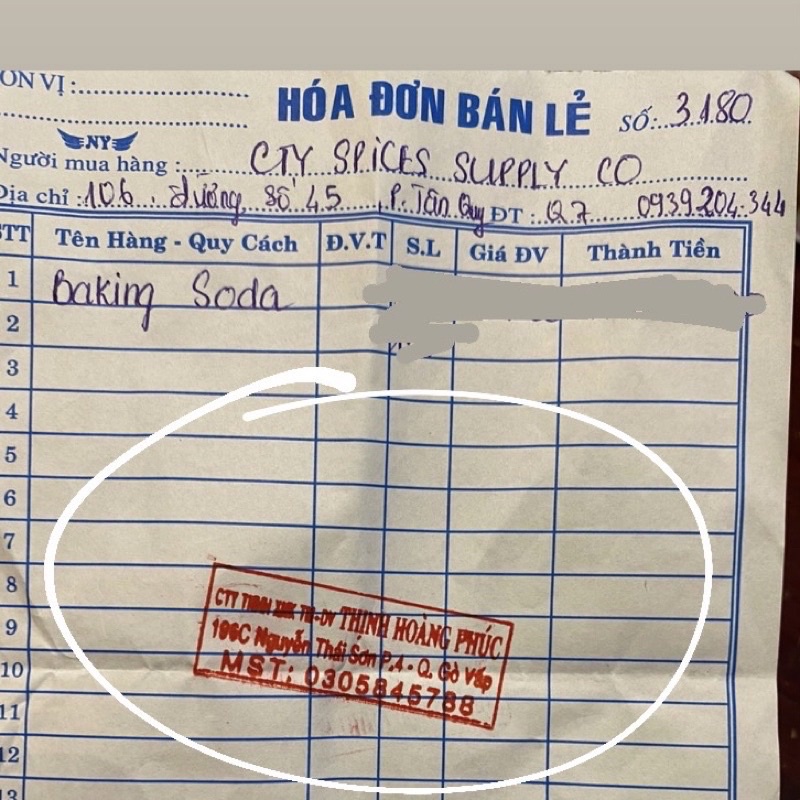 ĐƠN VỊ :
HÓA ĐƠN BÁN LẺ SỐ: 3180
NY
Người mua hàng : CTY SPICES SUPPLY CO
Địa chỉ : 106 đường số 45, P. Tân Quy ĐT : Q7 0939.204.344
STT Tên Hàng - Quy Cách Đ.V.T S.L Giá ĐV Thành Tiền
1 Baking Soda
2
3
4
5
6
7
8
9
10
11
12
13
CTY TNHH TM-DV THỊNH HOÀNG PHÚC
196C Nguyễn Thái Sơn P.4 - Q. Gò Vấp
MST: 0305845788